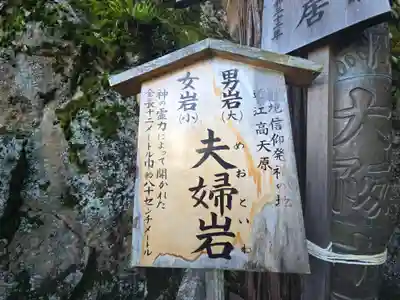 磐境信仰発祥の地
近江高天原
男岩(大)
女岩(小)
夫婦岩
めおといわ
神の霊力によって開かれた
全長十二メートル巾約八十センチメートル
居
太